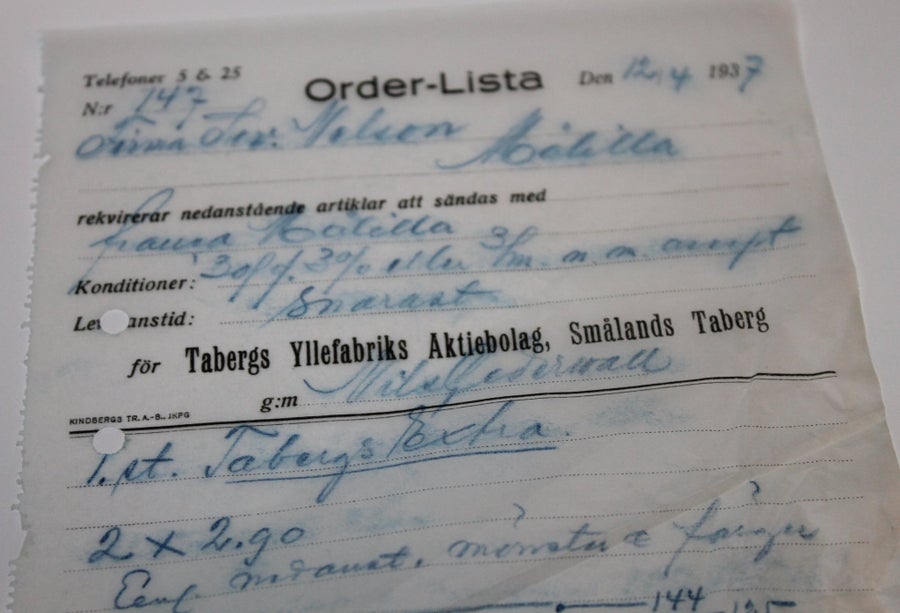 Telefoner 5 & 25
Order-Lista
Den 12/4 1937
N:r 147
Firma Nelson
Målilla
rekvirerar nedanstående artiklar att sändas med
franco Målilla
Konditioner: 30 d. 3% eller 3 m. n. m. accept
Leveranstid: Snarast
för Tabergs Yllefabriks Aktiebolag, Smålands Taberg
g:m Nils Cederwall
KINDBERGS TR. A.-B., JKPG
1. st. Tabergs Extra.
2 x 2.90
Enl. mönster & färger
144